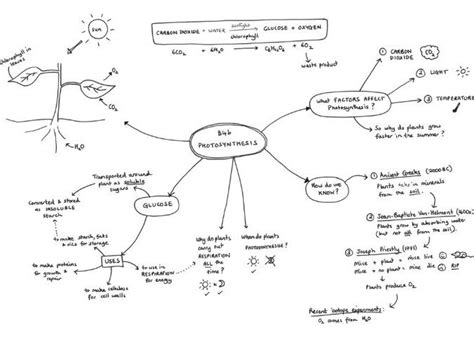 chlorophyll in
leaves
SUN
O₂
CO₂
CARBON DIOXIDE + WATER sunlight chlorophyll GLUCOSE + OXYGEN
6CO₂ + 6H₂O C₆H₁₂O₆ + 6O₂
waste product
B4b
PHOTOSYNTHESIS
What FACTORS AFFECT
Photosynthesis?
① CARBON
DIOXIDE
CO₂
② LIGHT
③ TEMPERATURE
So why do plants grow
faster in the summer?
How do we
KNOW?
① Ancient Greeks (2000BC)
Plants take in minerals
from the soil.
② Jean-Baptiste Van-Helmont (1600s)
Plants grow by absorbing water
(but not off from the soil).
③ Joseph Priestly (1771)
Mice + plant = mice live
mice + no plant = mice die RIP
Plants produce O₂
Recent isotope experiments:
O₂ comes from H₂O
GLUCOSE
Transported around
plant as soluble
sugars
Converted & stored
as INSOLUBLE
starch.
USES
to make starch, fats
& oils for storage
to make proteins
for growth &
repair
to make cellulose
for cell walls
to use in
RESPIRATION
for energy
Why do plants
carry out
RESPIRATION
ALL the
time?
When do plants
PHOTOSYNTHESISE?